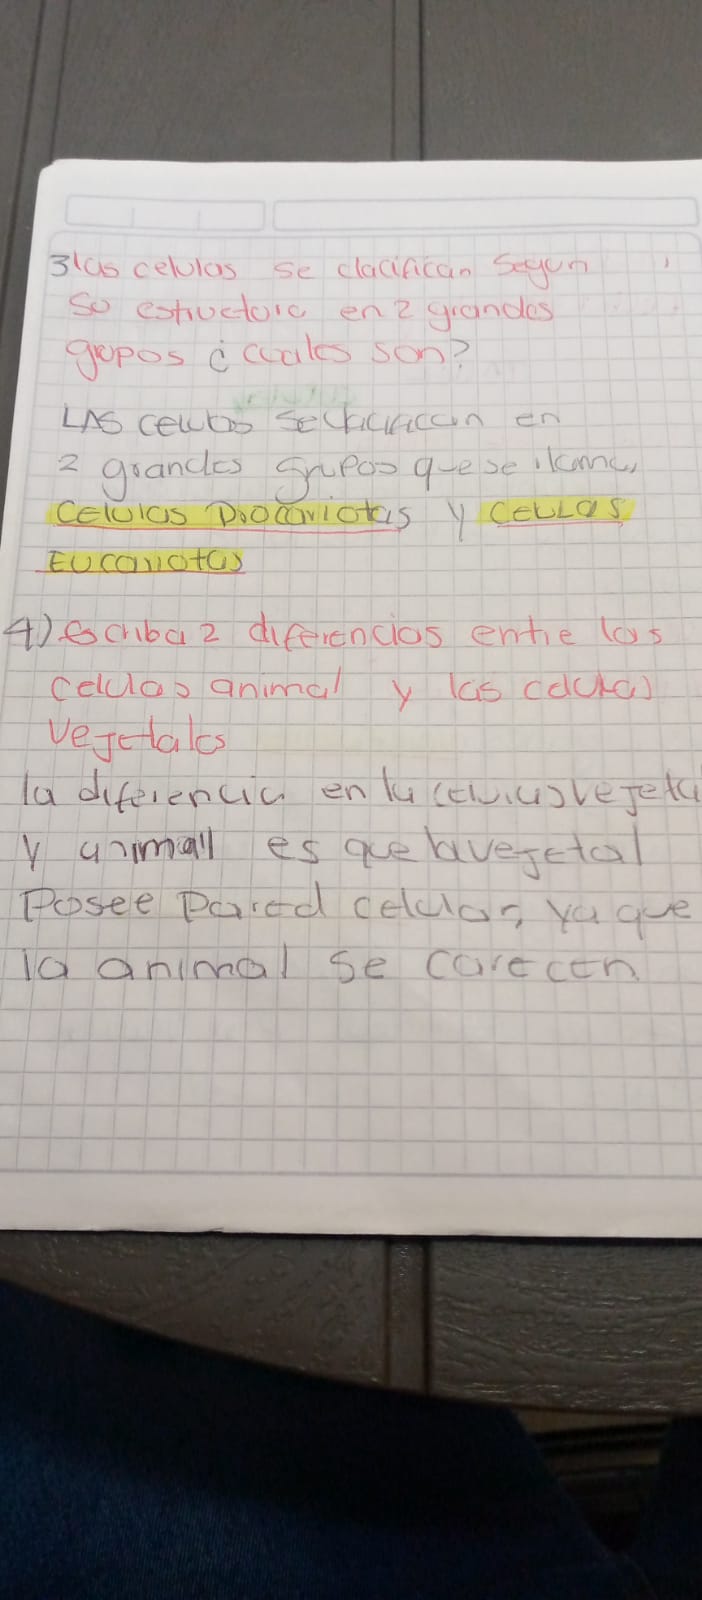 3 las celulas se clacifican segun
So estructura en 2 grandes
grupos ¿cuales son?
LAS celulas se clacifican en
2 grandes grupos que se llama
Celulas Procariotas y CeLLas
Eucariotas
4) escriba 2 diferencias entre las
celulas animal y las celulas
vegetales
la diferencia en la celula vegeta
y animal es que la vegetal
Posee Pared celular, ya que
la animal se carecen